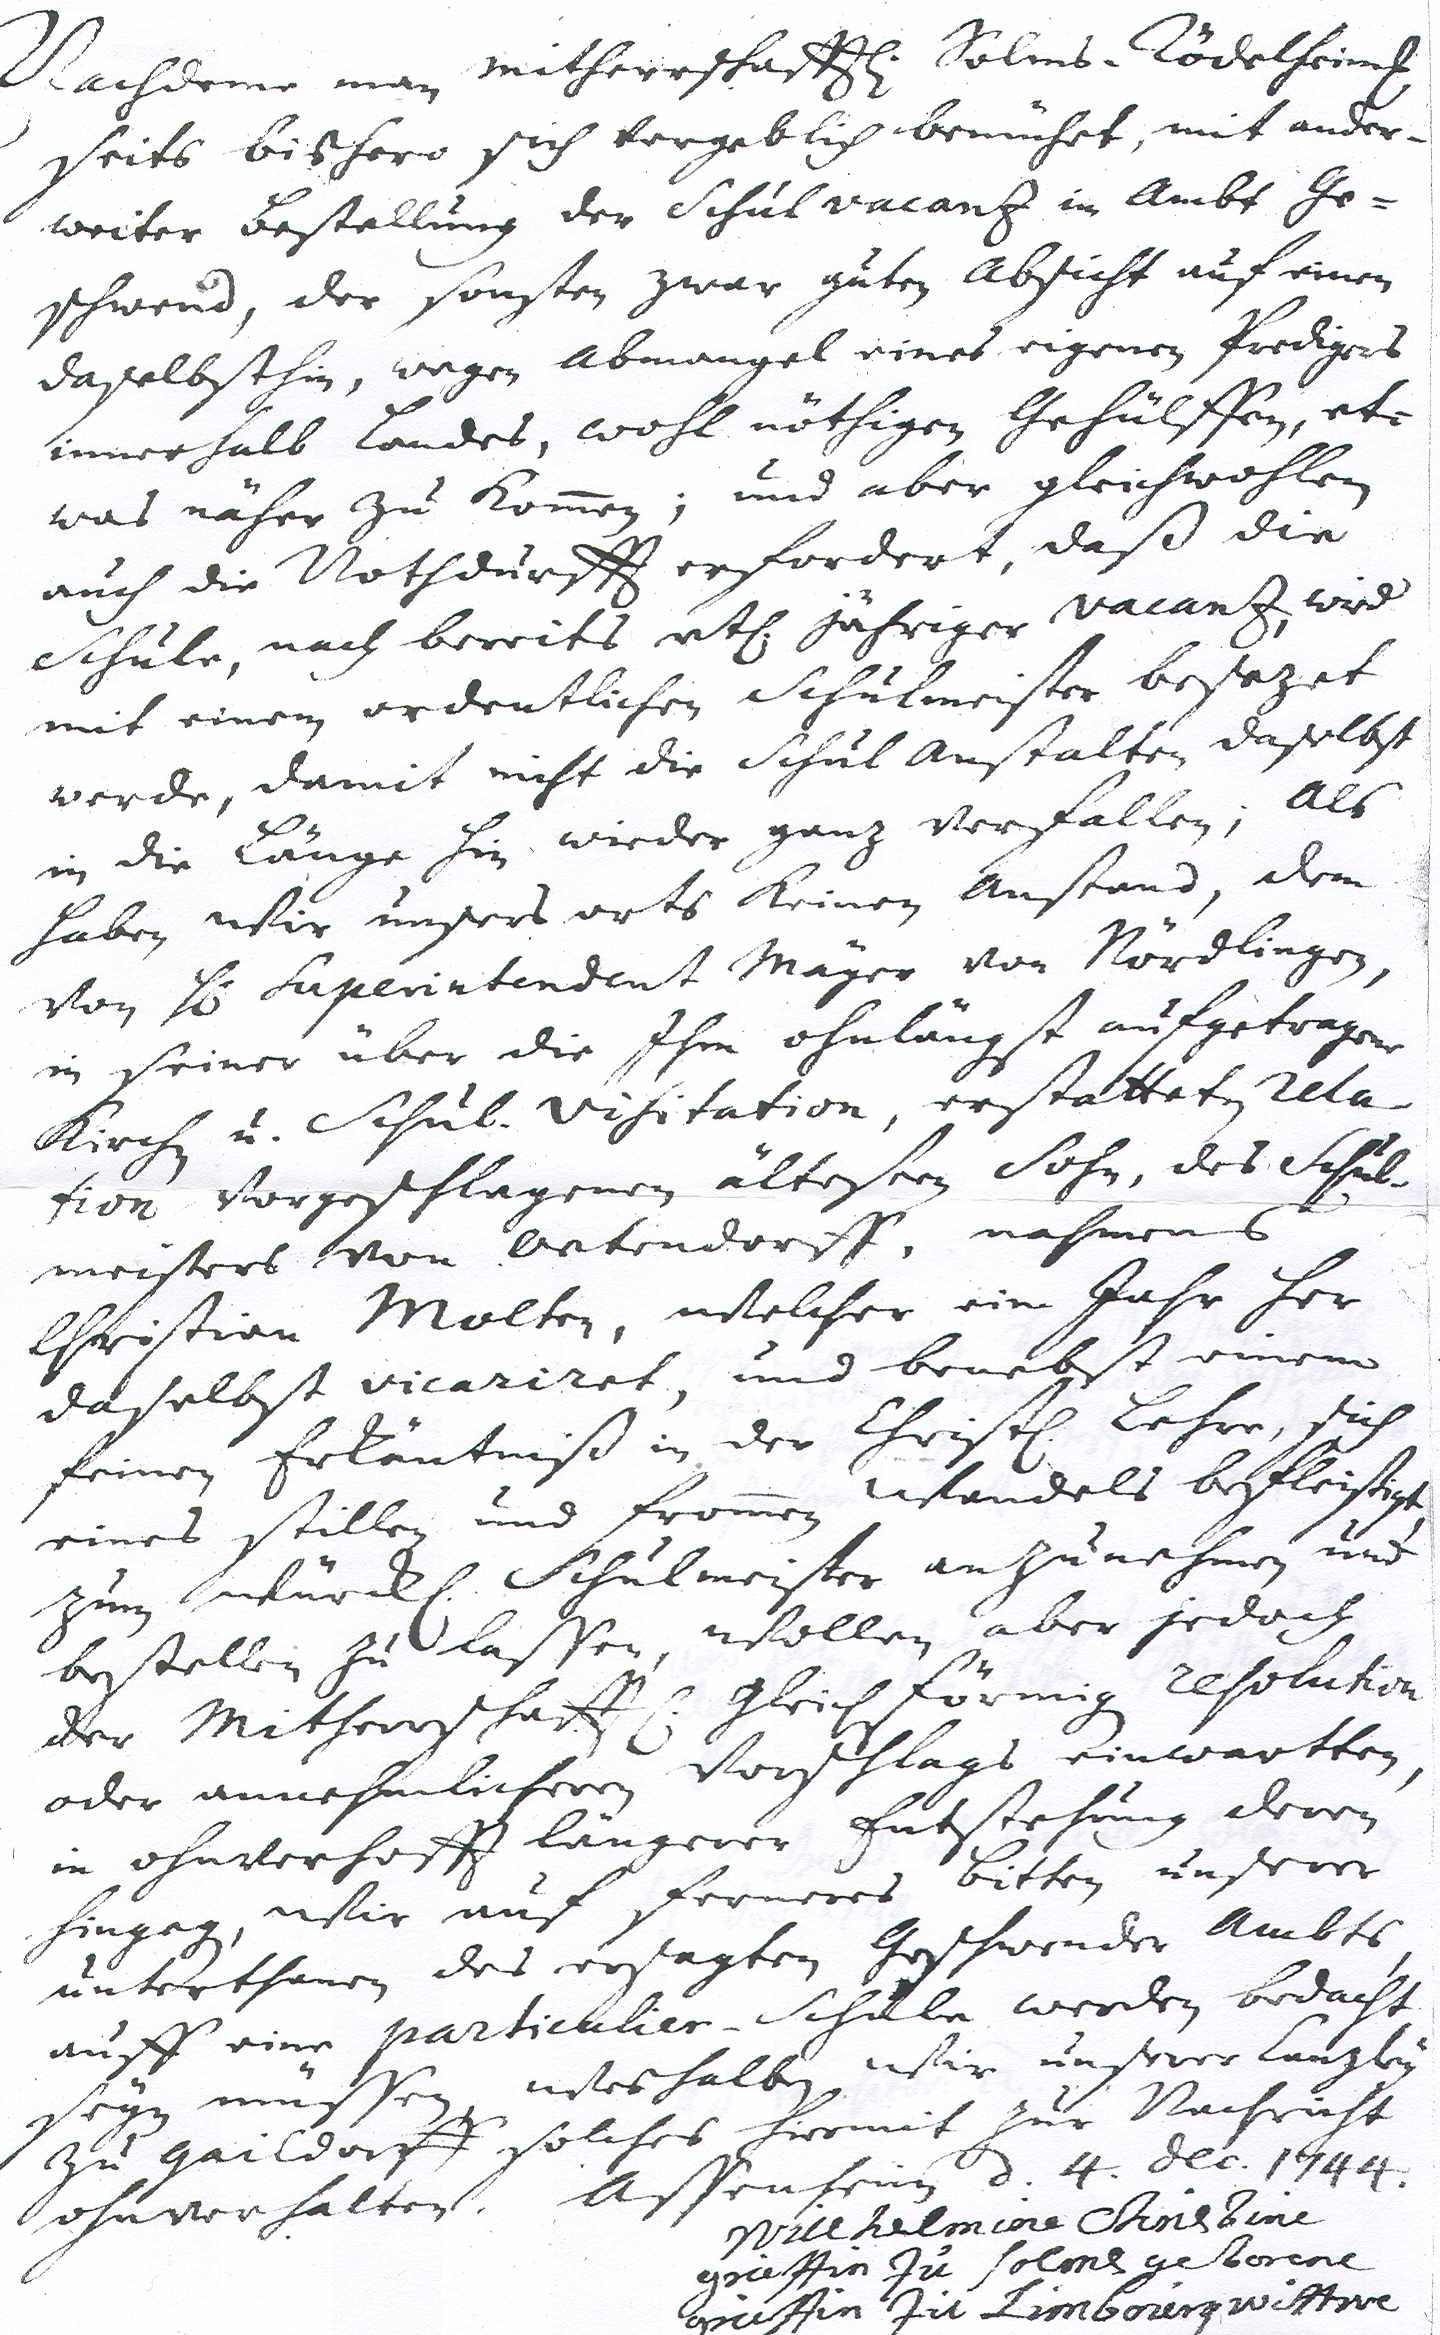 Nachdeme man mitherrschafftl. Solms-Rödelheiml.
seits bishero sich vergeblich bemühet, mit ander-
weiter Bestellung der Schul vacanz in Ambt Ge=
schwend, der sonsten zwar guten Absicht auf einen
daselbsthin, wegen Abmangel eines eigenen Predigers
innerhalb Landes, wohl nöthigen Gehülffen, et=
was näher zu kom̅en; und aber gleichwohlen
auch die Nothdurfft erfordert, daß die
Schule, nach bereits etl. jähriger vacanz, wird
mit einem ordentlichen Schulmeister besezet
werde, damit nicht die Schul Anstalten daselbst
in die Länge hin wieder ganz verfallen; Als
haben Wir unsers orts keinen Anstand, dem
von H. Superintendent Mäyer von Nördlingen,
in seiner über die Ihm ohnlängst aufgetragene
Kirchen u. Schul-Visitation, erstatteten rela-
tion vorgeschlagenen ältesten Sohn, des Schul-
meisters von Oetendorff, nahmens
Christian Molten, Welcher ein Jahr her
daselbst vicariret, und benebst einem
feinen Erkäntniß in der Christl. Lehre, sich
eines stillen und from̅en Wandels befleißigt,
zum Würckl. Schulmeister anzunehmen und
bestellen zu lassen, Wollen aber jedoch
der Mitherrschafftl. gleichförmig resolution
oder annehmlicheren Vorschlags einwartten,
in ohnverhofft längerer Entstehung deren
hingegen, Wir auf ferneres Bitten unserer
unterthanen des ersagten Geschwender Ambts,
auff eine particulier-Schule werden bedacht
seyn müssen, Weshalben Wir unserer Canzley
zu Gaildorff solches hiermit zur Nachricht
ohnverhalten. Assenheim d. 4. Dec. 1744.
Willhelmine Christine
gräffin zu solms geborene
gräffin zu Limbourg wittwe